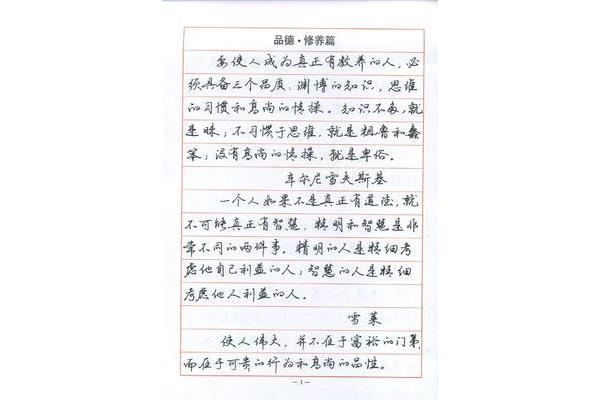 品德·修养篇
要使人成为真正有教养的人，必
须具备三个品质：渊博的知识，思维
的习惯和高尚的情操。知识不多，就
是昧；不习惯于思维，就是粗鲁和蠢
笨；没有高尚的情操，就是卑俗。
车尔尼雪夫斯基
一个人如果不是真正有道德，就
不可能真正有智慧，精明和智慧是非
常不同的两件事。精明的人是精细考
虑他自己利益的人；智慧的人是精细
考虑他人利益的人。
雪莱
使人伟大，并不在于富裕的门第，
而在于可贵的行为和高尚的品性。
—1—